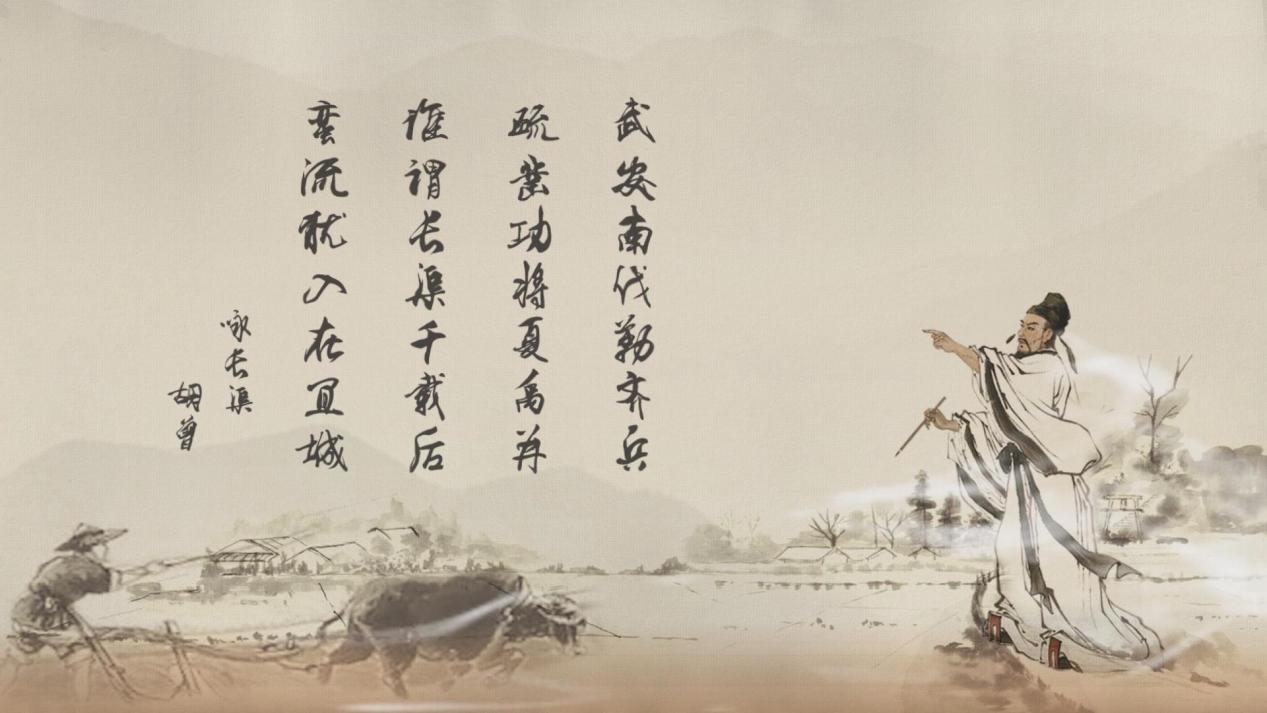 武安南伐勒齐兵
疏凿功将夏禹并
谁谓长渠千载后
蛮流犹入在宜城
咏长渠
胡曾